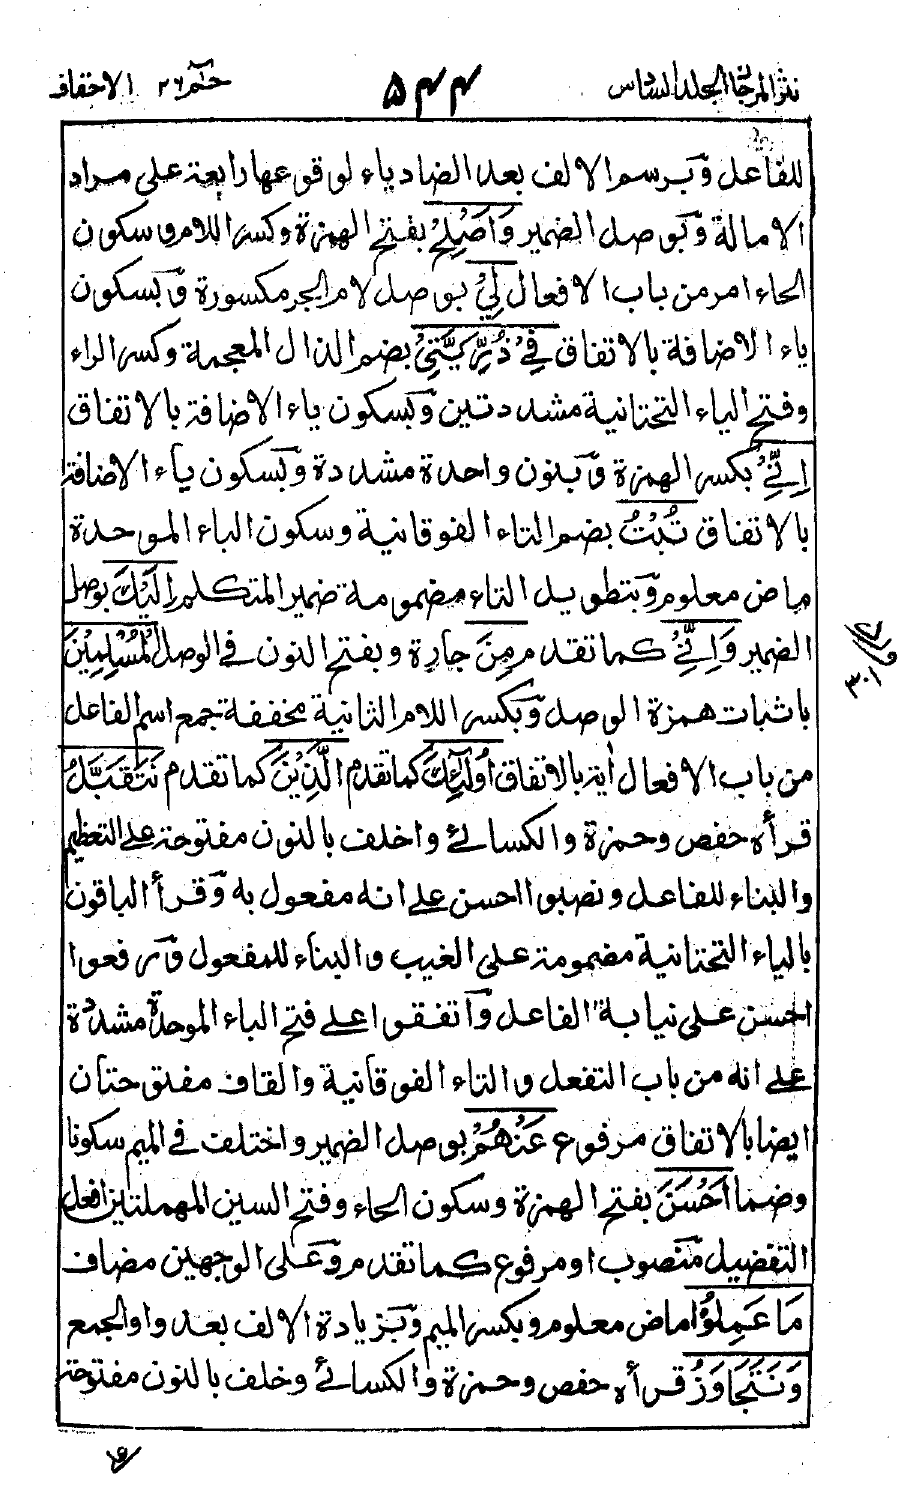 نثر المرجان المجلد السادس ۵۴۴ حٰم ۲۶ الاحقاف
للفاعل وَبرسم الالف بعد الضاد ياء لوقوعها رابعة على مراد
الامالة وَبوصل الضمير وَاَصْلِحْ بفتح الهمزة وكسر اللام وسكون
الحاء امر من باب الافعال لِيْ بوصل لام الجر مكسورة وَبسكون
ياء الاضافة بالاتفاق فِيْ ذُرِّيَّتِيْ بضم الذال المعجمة وكسر الراء
وفتح الياء التحتانية مشددتين وَبسكون ياء الاضافة بالاتفاق
اِنِّيْ بكسر الهمزة وَبنون واحدة مشددة وَبسكون ياء الاضافة
بالاتفاق تُبْتُ بضم التاء الفوقانية وسكون الباء الموحدة
ماض معلوم وَبتطويل التاء مضمومة ضمير المتكلم اِلَيْكَ بوصل
الضمير وَاِنِّيْ كما تقدم مِنَ جارة وبفتح النون في الوصل الْمُسْلِمِيْنَ
باثبات همزة الوصل وَبكسر اللام الثانية مخففة جمع اسم الفاعل
من باب الافعال اٰية بالاتفاق اُولٰٓئِكَ كما تقدم الَّذِيْنَ كما تقدم نَتَقَبَّلُ
قرأه حفص وحمزة والكسائي واخلف بالنون مفتوحة على التعظيم
والبناء للفاعل ونصبوا احسن على انه مفعول به وَقرأ الباقون
بالياء التحتانية مضمومة على الغيب والبناء للمفعول وَرفعوا
احسن على نيابة الفاعل وَاتفقوا على فتح الباء الموحدة مشددة
على انه من باب التفعل والتاء الفوقانية والقاف مفتوحتان
ايضا بالاتفاق مرفوع عَنْهُمْ بوصل الضمير واختلف في الميم سكونا
وضما اَحْسَنَ بفتح الهمزة وسكون الحاء وفتح السين المهملتين افعل
التفضيل منصوب او مرفوع كما تقدم وَعلى الوجهين مضاف
مَا عَمِلُوْا ماض معلوم وبكسر الميم وَبزيادة الالف بعد واو الجمع
وَنَتَجَاوَزُ قرأه حفص وحمزة والكسائي وخلف بالنون مفتوحة